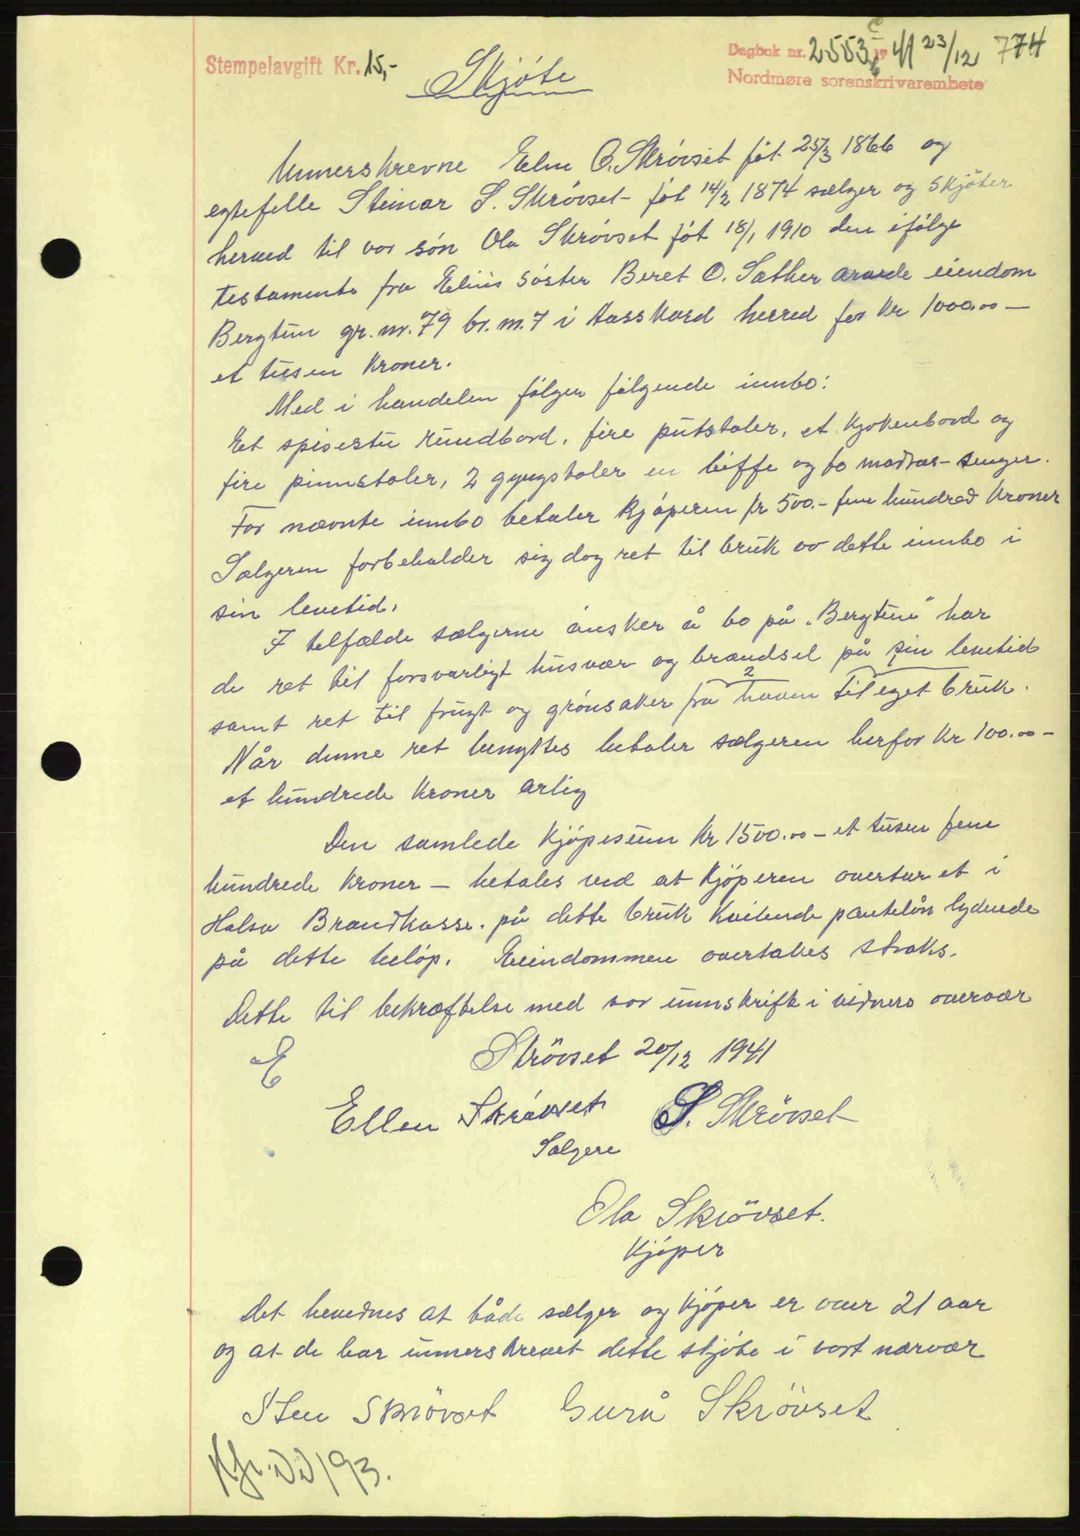 Stempelavgift Kr. 15,-
Skjøte
Dagbok nr. 2553 19 41 23/12 774
Nordmøre sorenskrivarembete
Unnerskrevne Elen O. Skrövset føt 25/3 1866 og
egtefelle Steinar S. Skrövset føt 14/2 1874 sælger og skjøter
herved til vor søn Ola Skrövset føt 18/1 1910 den ifølge
testamente fra Elens søster Beret O. Sæther arvede eiendom
Bergtun gr. nr. 79 br. nr. 7 i Aasskard herred for Kr 1000.00 —
et tusen Kroner.
Med i handelen følger følgende innbo:
Et spisestu rundbord, fire putstoler, et kjøkenbord og
fire pinnstoler, 2 gyngstoler en biffe og to madras-senger.
For nævnte innbo betaler kjøperen kr 500.- fem hundred Kroner
Sælgeren forbeholder sig dog ret til bruk av dette innbo i
sin levetid.
I tilfælde sælgerne ønsker å bo på "Bergtun" har
de ret til forsvarligt husvær og brændsel på sin levetid
samt ret til frugt og grønsaker fra haven til eget bruk.
Når denne ret benyttes betaler sælgeren herfor Kr 100.00 —
et hundrede Kroner årlig
Den samlede Kjøpesum Kr 1500.00 — et tusen fem
hundrede Kroner — betales ved at Kjøperen overtar et i
Halsa Brandkasse på dette bruk hvilende pantelån lydende
på dette beløp. Eiendommen overtakes straks.
Dette til bekræftelse med vor unnskrift i vidners overvær
E Skrövset 20/12 1941
Ellen Skrövset S. Skrövset
Sælgere
Ola Skrövset.
Kjøper
Det bevidnes at både sælger og Kjøper er over 21 aar
og at de har unnerskrevet dette skjøte i vort nærvær
Sten Skrövset Guru Skrövset
93.